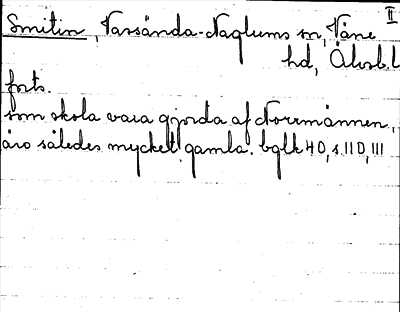 II
Smitin, Vassända-Naglums sn, Väne
hd, Älvsb.l
forts.
som skola vara gjorda af Norrmännen,
äro således mycket gamla. bglk 40, s. 110, 111